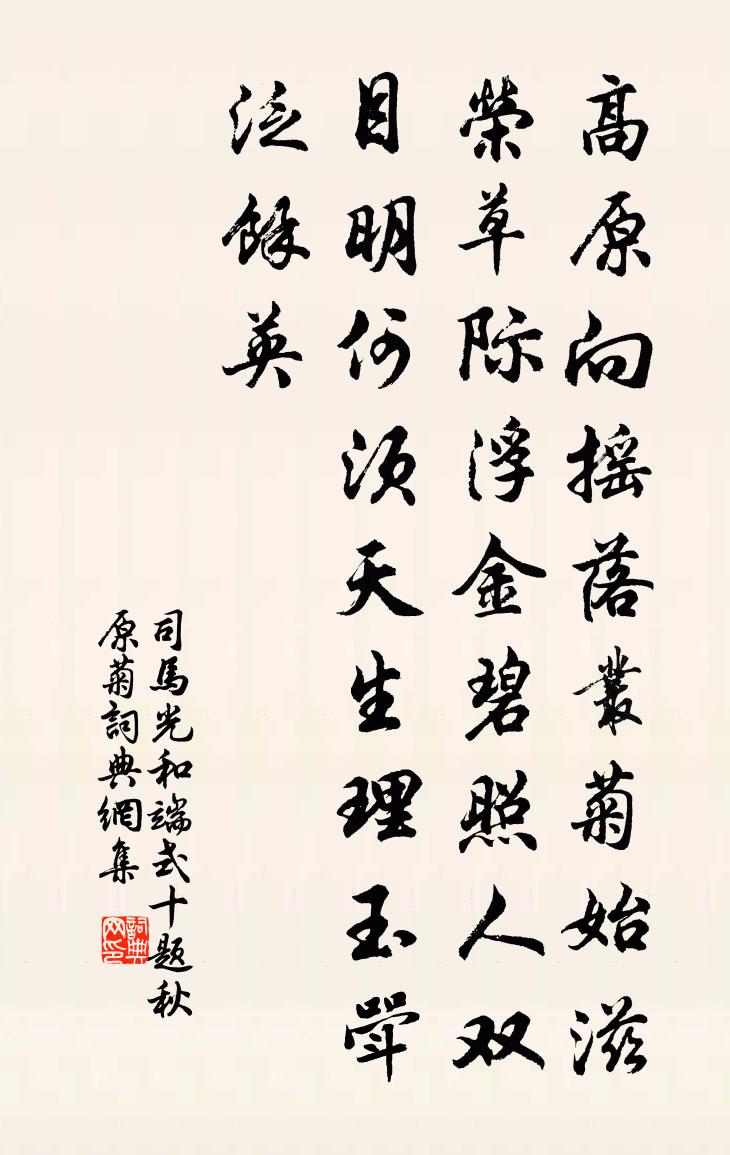 高原向摇落叢菊始滋
榮草际浮金碧照人双
目明何须天生理玉斝
泛餘英
司馬光和端式十题秋
原菊詞典網集
詞典
网印